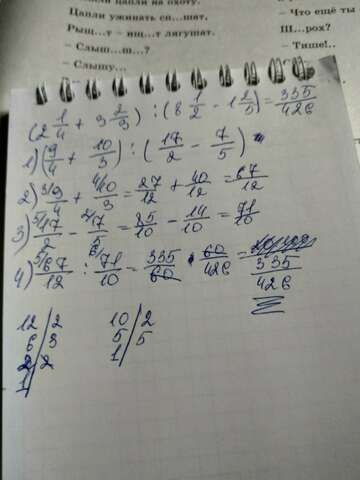 Цапли ужинать сп...шат.
Рыщ...т – ищ...т лягушат.
– Слыш...ш...?
– Слышу...
– Что ещё ты
Ш...рох?
– Тише!..
(2 1/4 + 3 2/3) : (8 1/2 - 1 2/5) = 335/426
1) (9/4 + 10/3) : (17/2 - 7/5)
2) 3/9/4 + 4/10/3 = 27/12 + 40/12 = 67/12
3) 5/17/2 - 2/7/5 = 85/10 - 14/10 = 71/10
4) 5/67/12 : 6/71/10 = 335/60 · 60/426 = 335/426
12/2
6/3
2/2
1/
10/2
5/5
1/